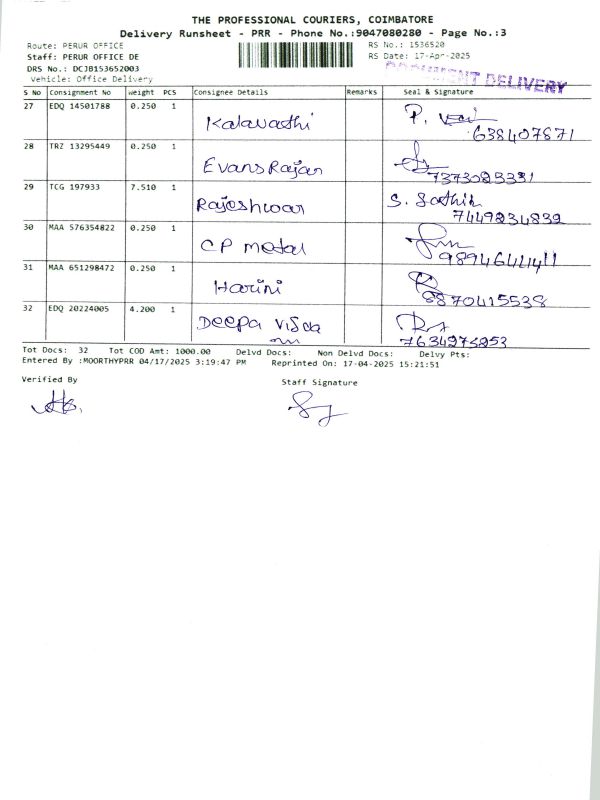 THE PROFESSIONAL COURIERS, COIMBATORE
Delivery Runsheet - PRR - Phone No.:9047080280 - Page No.:3
Route: PERUR OFFICE
RS No.: 1536520
Staff: PERUR OFFICE DE
RS Date: 17-Apr-2025
DRS No.: DCJB153652003
Vehicle: Office Delivery
DOCUMENT DELIVERY
S No Consignment No weight PCS Consignee Details Remarks Seal & Signature
27 EDQ 14501788 0.250 1 Kalavathi P.
638407871
28 TRZ 13295449 0.250 1 Evans Rajan
7373083331
29 TCG 197933 7.510 1 Rajeshwar S. Sathik
7449234832
30 MAA 576354822 0.250 1 CP metal
31 MAA 651298472 0.250 1 Harini
8870415538
32 EDQ 20224005 4.200 1 Deepa
7634975253
Tot Docs: 32 Tot COD Amt: 1000.00 Delvd Docs: Non Delvd Docs: Delvy Pts:
Entered By :MOORTHYPRR 04/17/2025 3:19:47 PM Reprinted On: 17-04-2025 15:21:51
Verified By Staff Signature